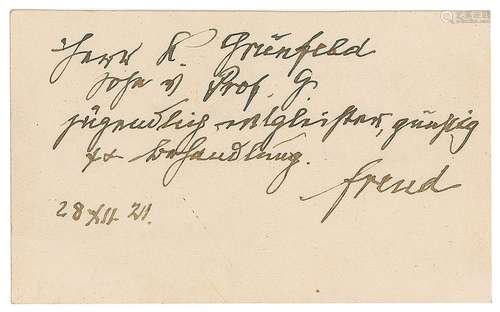 Herr K. Grünfeld
Sohn v Prof. G.
jugendlich entgleister, günstig
Behandlung.
Freud
28 XII 21.